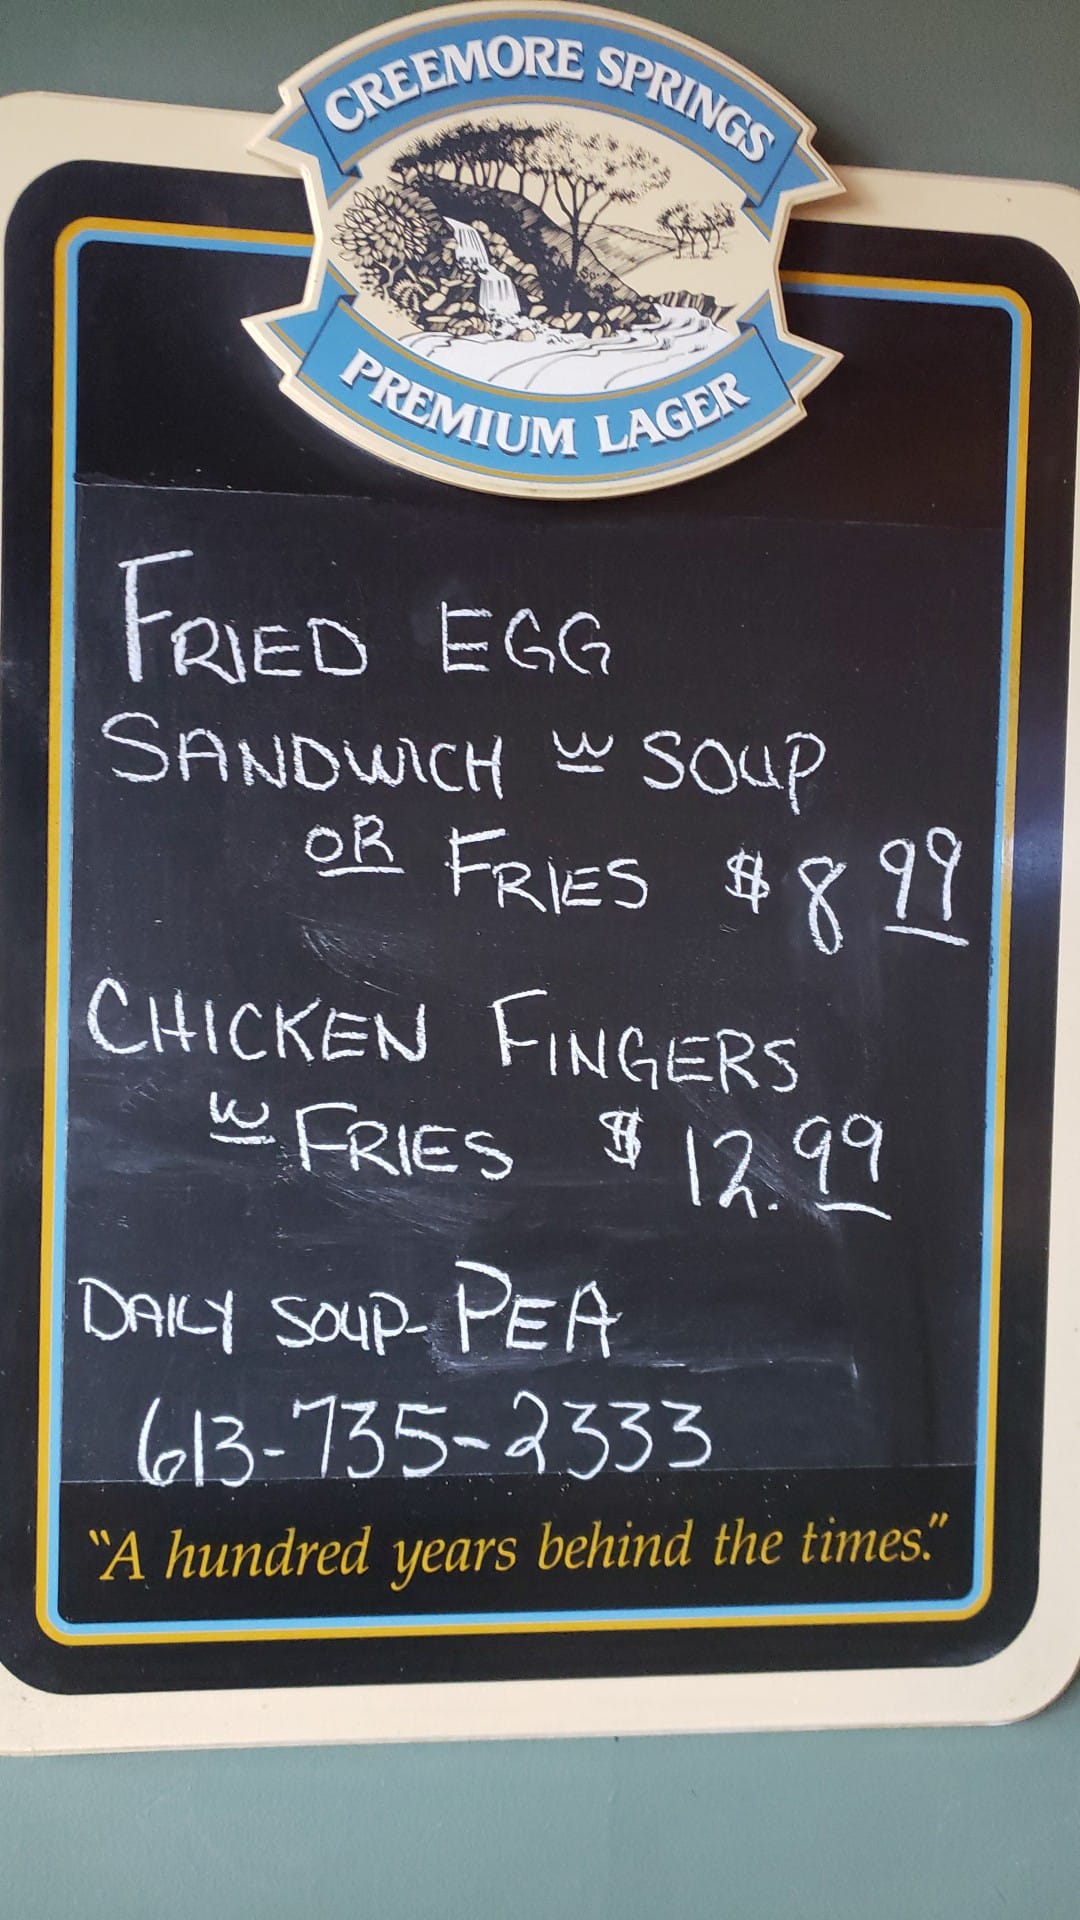 CREEMORE SPRINGS
PREMIUM LAGER
FRIED EGG
SANDWICH w SOUP
OR FRIES $8 99
CHICKEN FINGERS
w FRIES $12.99
DAILY SOUP- PEA
613-735-2333
"A hundred years behind the times."